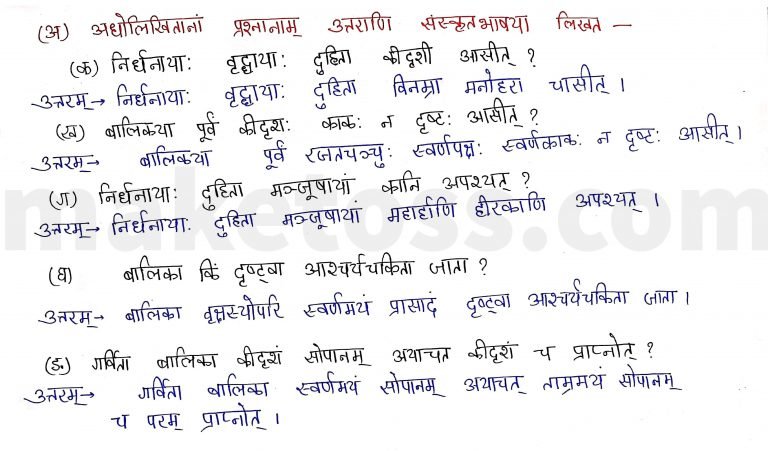 (अ) अधोलिखितानां प्रश्नानाम् उत्तराणि संस्कृतभाषया लिखत –
(क) निर्धनायाः वृद्धायाः दुहिता कीदृशी आसीत् ?
उत्तरम् → निर्धनायाः वृद्धायाः दुहिता विनम्रा मनोहरा चासीत् ।
(ख) बालिकया पूर्वं कीदृशः काकः न दृष्टः आसीत् ?
उत्तरम् → बालिकया पूर्वं रजतचञ्चुः स्वर्णपक्षः स्वर्णकाकः न दृष्टः आसीत् ।
(ग) निर्धनायाः दुहिता मञ्जूषायां कानि अपश्यत् ?
उत्तरम् → निर्धनायाः दुहिता मञ्जूषायां महार्हाणि हीरकाणि अपश्यत् ।
maketoss.com
(घ) बालिका किं दृष्ट्वा आश्चर्यचकिता जाता ?
उत्तरम् → बालिका वृक्षस्योपरि स्वर्णमयं प्रासादं दृष्ट्वा आश्चर्यचकिता जाता ।
(ङ) गर्विता बालिका कीदृशं सोपानम् अयाचत कीदृशं च प्राप्नोत् ?
उत्तरम् → गर्विता बालिका स्वर्णमयं सोपानम् अयाचत् ताम्रमयं सोपानम्
च परम् प्राप्नोत् ।